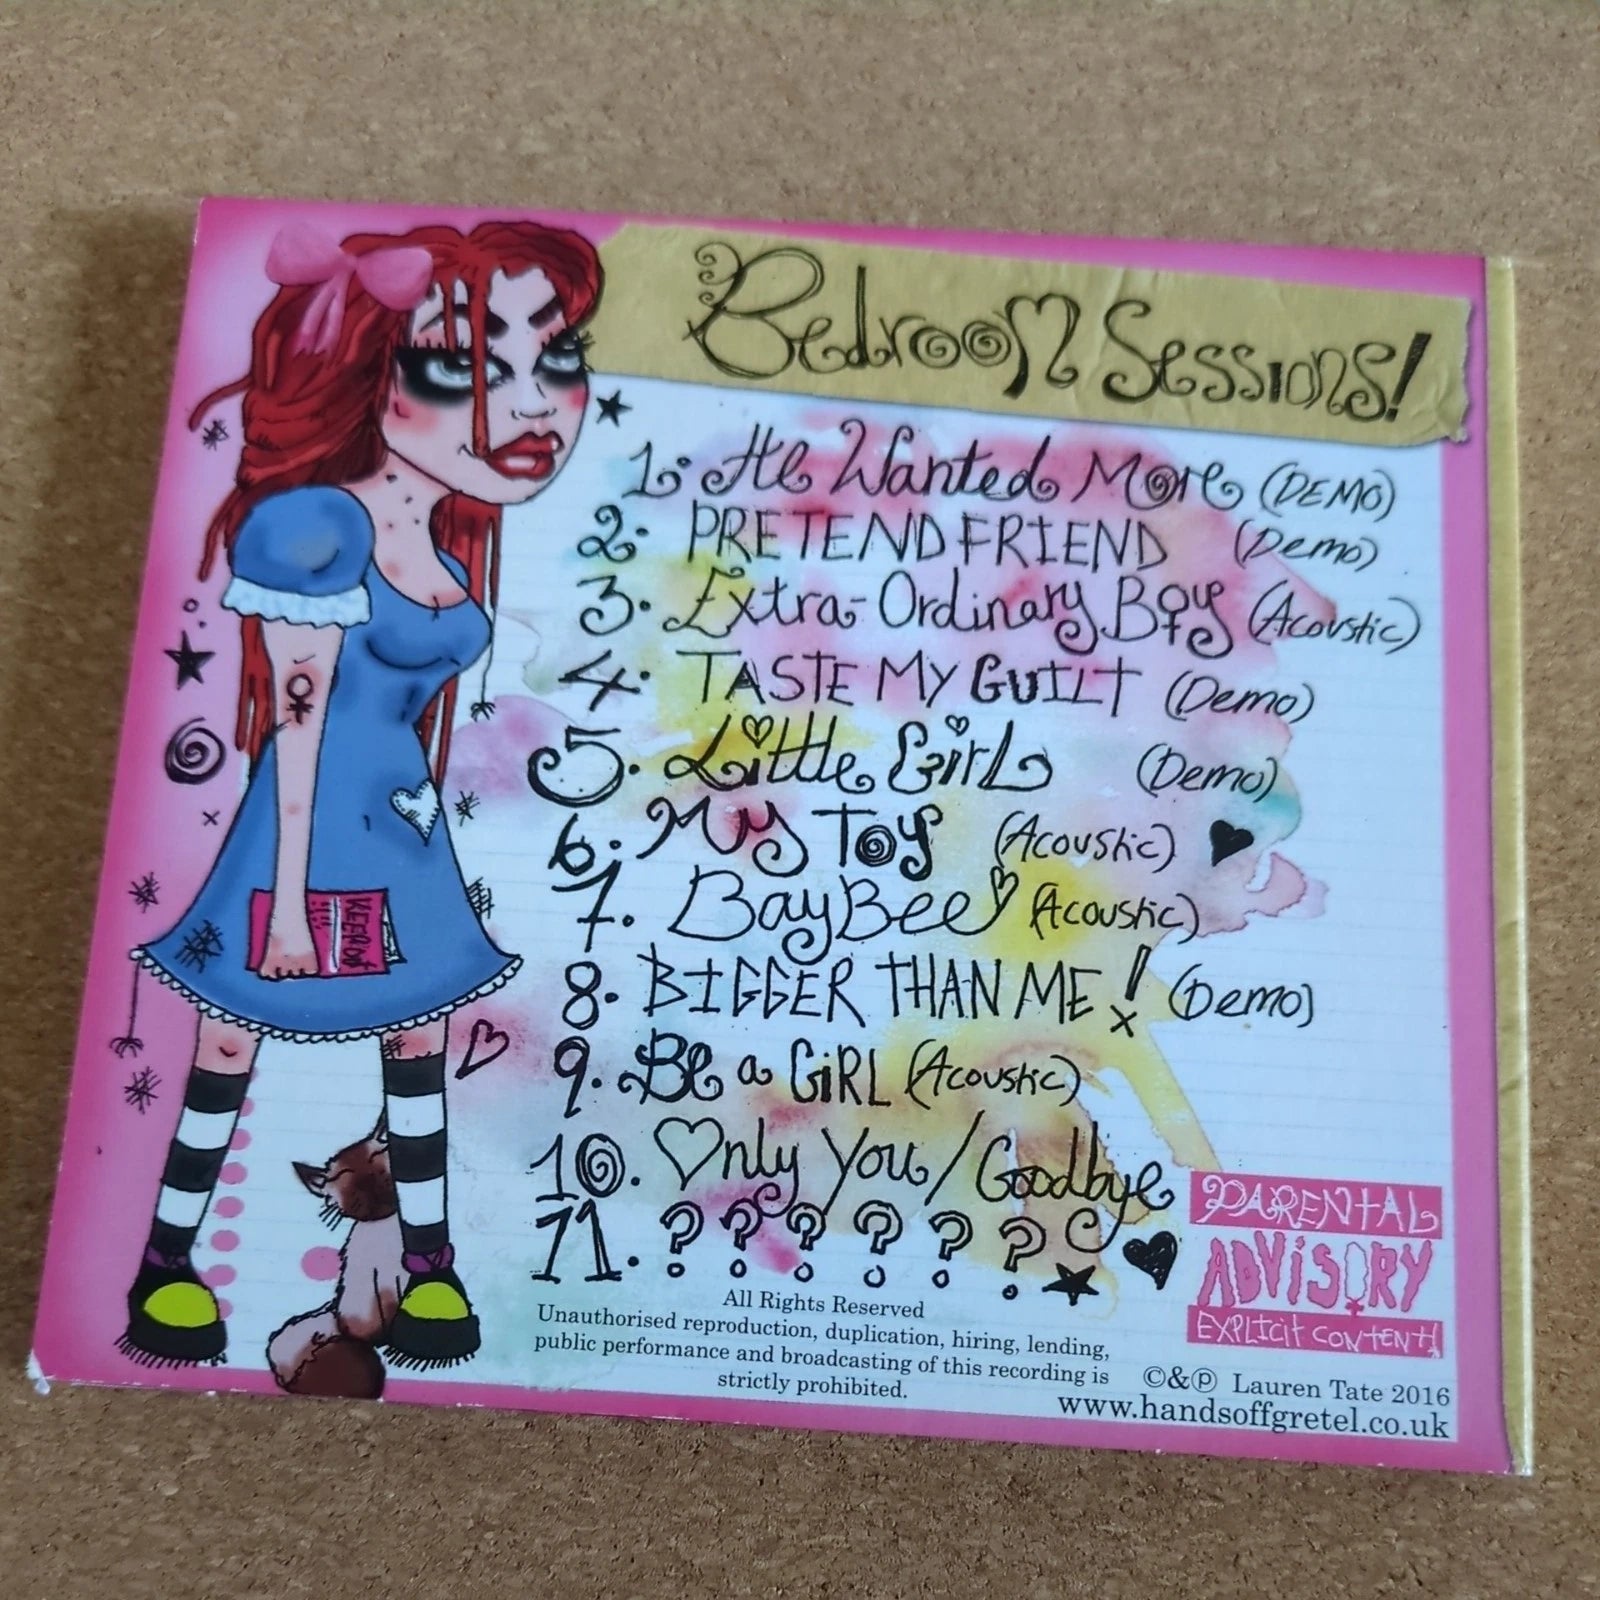 Bedroom Sessions!
1. He Wanted More (DEMO)
2. PRETEND FRIEND (Demo)
3. Extra-Ordinary Boy (Acoustic)
4. TASTE MY GUILT (Demo)
5. Little Girl (Demo)
6. My Toy (Acoustic)
7. BayBee (Acoustic)
8. BIGGER THAN ME! (Demo)
9. Be a GiRL (Acoustic)
10. Only You / Goodbye
11. ? ? ? ? ? ?
KEEP OUT
PARENTAL
ADViSORY
EXPLICIT CONTENT!
All Rights Reserved
Unauthorised reproduction, duplication, hiring, lending,
public performance and broadcasting of this recording is
strictly prohibited.
©&℗ Lauren Tate 2016
www.handsoffgretel.co.uk